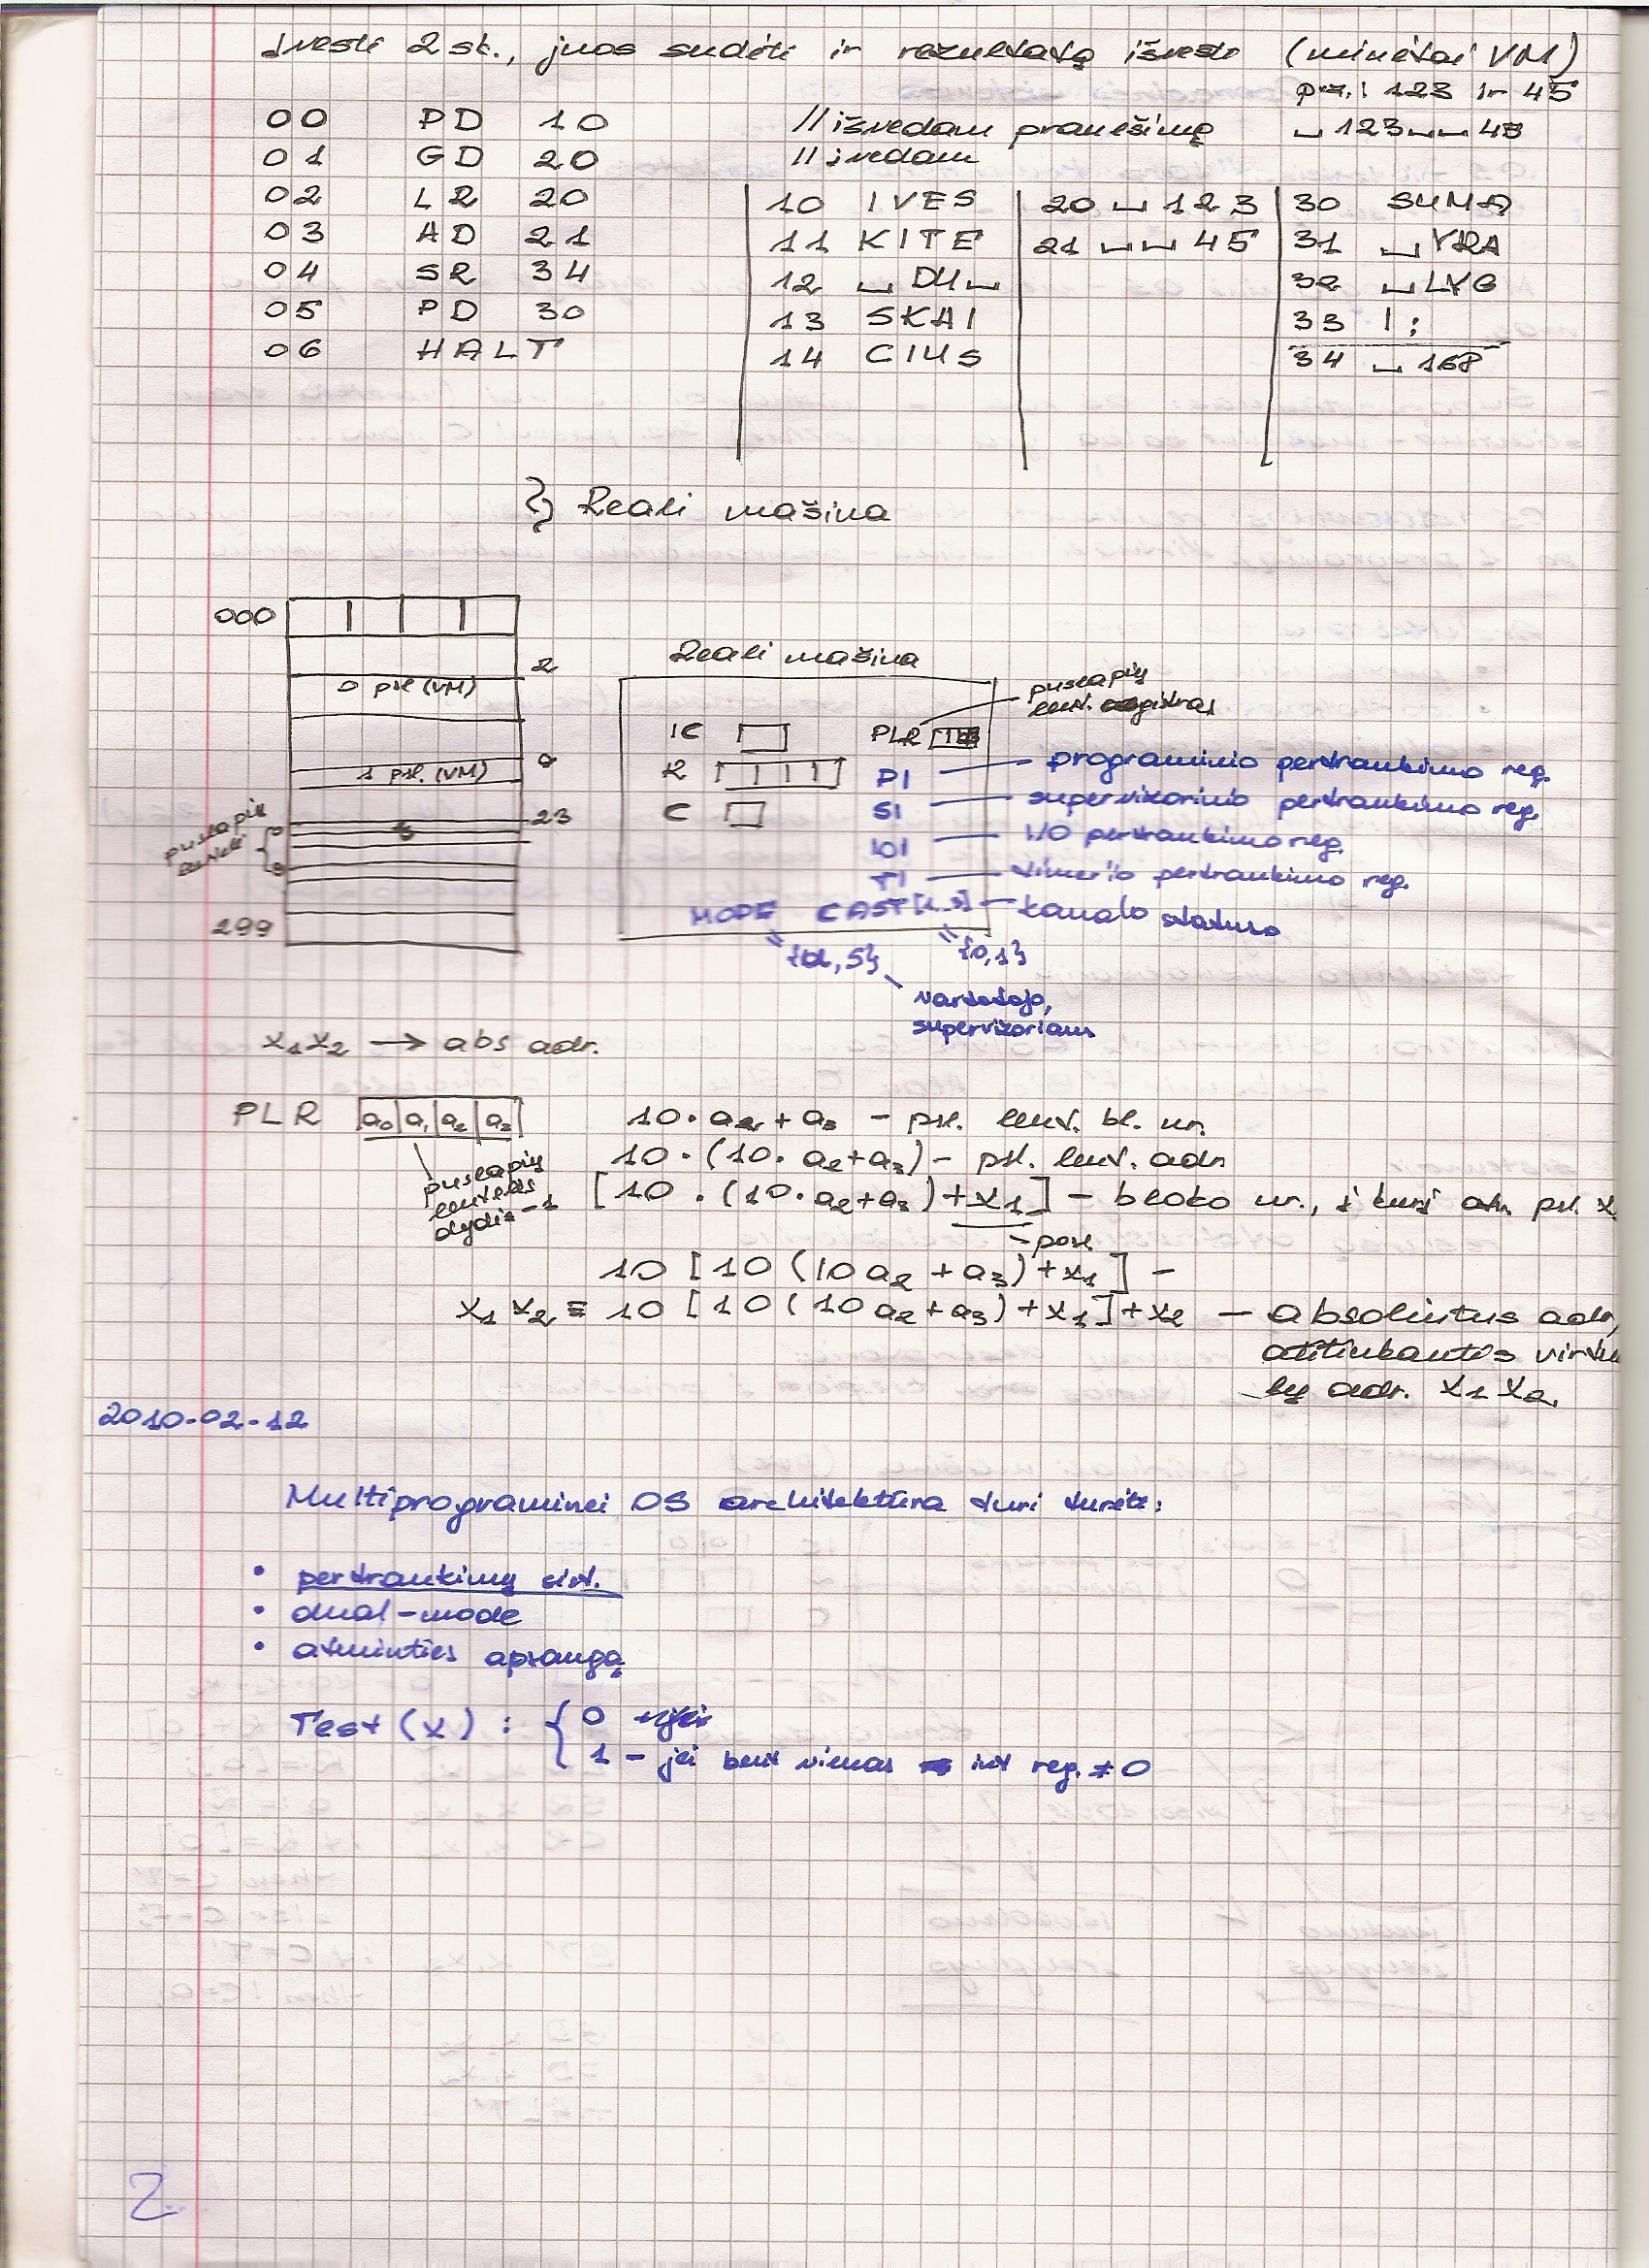 Įvesti 2 sk., juos sudėti ir rezultatą išvesti (minėtai VM)
pvz.: 123 ir 45
00 PD 10 //išvedam pranešimą ␣123␣␣45
01 GD 20 //įvedam
02 LR 20 | 10 IVES | 20 ␣123 | 30 SUMA
03 AD 21 | 11 KITE | 21 ␣␣45 | 31 ␣YRA
04 SR 34 | 12 ␣DU␣ | 32 ␣LYG
05 PD 30 | 13 SKAI | 33 I:
06 HALT | 14 CIUS | 34 ␣168
Reali mašina
000
2
0 psl (VM)
1 psl. (VM)
23
puslapių lentelė
299
Reali mašina
IC PLR puslapių lent. registras
R PI programinio pertraukimo reg.
C SI supervizorinio pertraukimo reg.
IOI I/O pertraukimo reg.
TI timerio pertraukimo reg.
MODE CAST[1..3] kanalo status
= {0,1}
vartotojo,
supervizoriaus
x1x2 → abs adr.
PLR a0 a1 a2 a3 10·a2+a3 – psl. lent. bl. nr.
puslapių lentelės dydis-1
10·(10·a2+a3) – psl. lent. adr
[10·(10·a2+a3)+x1] – bloko nr., į kurį atv. psl. x
10 [10 (10a2+a3)+x1] –
x1x2 = 10 [10(10a2+a3)+x1]+x2 – absoliutus adr,
atitinkantis virtu
lų adr. x1x2
2010-02-12
Multiprograminei OS architektūra turi turėti:
• pertraukimų sist.
• dual-mode
• atminties apsaugą
Test(x) : { 0
1 – jei bent vienas int reg. ≠ 0
2